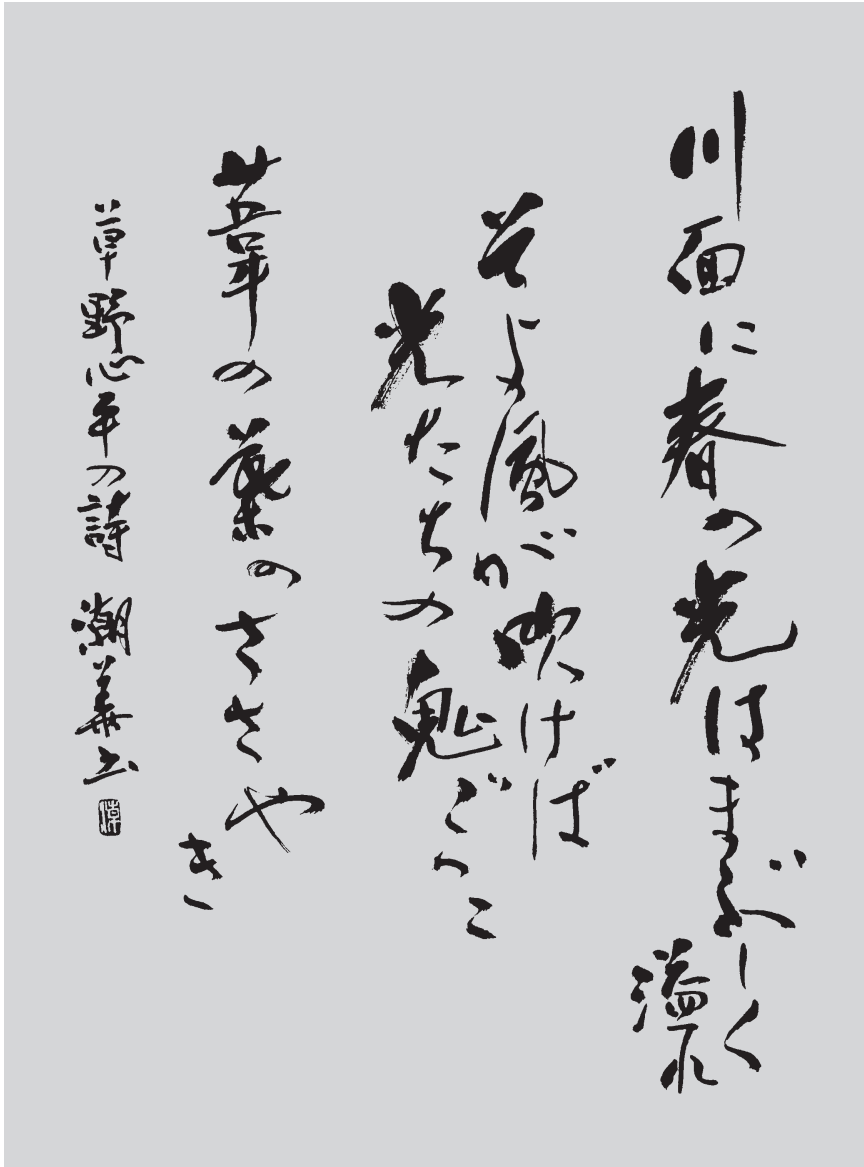 川面に春の光はまぶしく
溢れ
そよ風が吹けば
光たちの鬼ごっこ
葦の葉のささやき
草野心平の詩 潮華書